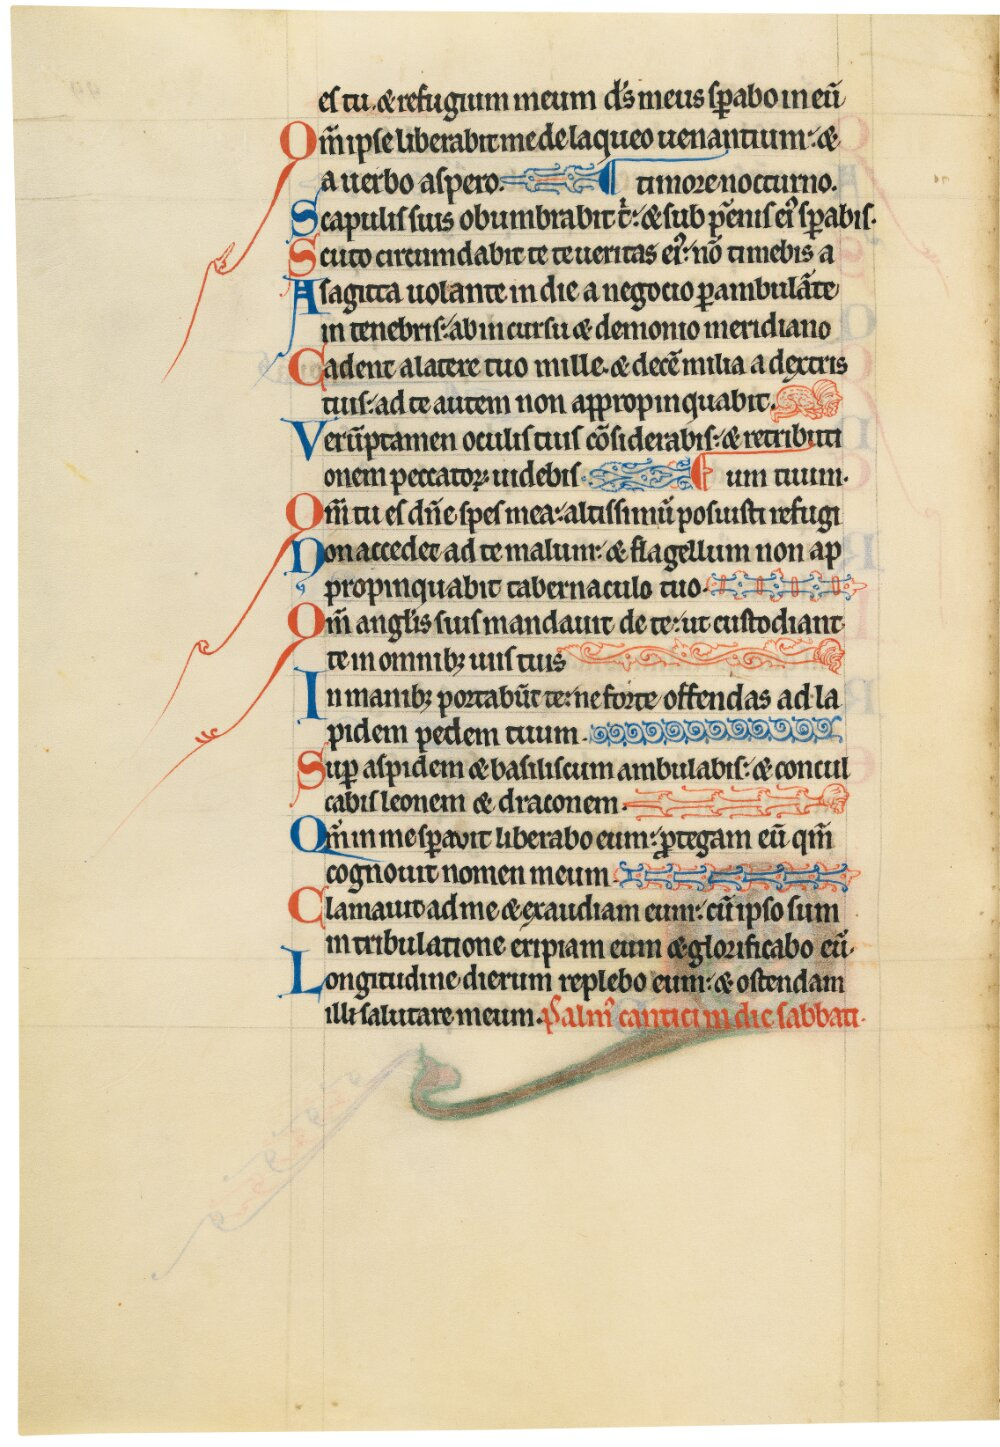 es tu. & refugium meum dr̄s meus sꝑabo in eū
Om̄ ipse liberabit me de laqueo uenantium: &
a uerbo aspero. timore nocturno.
Scapulis suis obumbrabit t̄: & sub pēnis ei' sꝑabis.
Scuto circumdabit te te ueritas ei': nō timebis a
A sagitta uolante in die a negocio ꝑambulāte
in tenebris: ab incursu & demonio meridiano
Cadent a latere tuo mille. & decē milia a dextris
tuis: ad te autem non appropinquabit.
Verūptamen oculis tuis cōsiderabis: & retributi
onem peccatoꝝ uidebis um tuum.
Om̄ tu es dn̄e spes mea: altissimū posuisti refugi
Non accedet ad te malum: & flagellum non ap
propinquabit tabernaculo tuo.
Om̄ anglis suis mandauit de te: ut custodiant
te in omnibꝫ uiis tuis
In manibꝫ portabūt te: ne forte offendas ad la
pidem pedem tuum.
Suꝑ aspidem & basiliscum ambulabis: & concul
cabis leonem & draconem.
Qm̄ in me sꝑauit liberabo eum: ꝓtegam eū qm̄
cognouit nomen meum.
Clamauit ad me & exaudiam eum: cū ipso sum
in tribulatione eripiam eum & glorificabo eū.
Longitudine dierum replebo eum: & ostendam
illi salutare meum. Psalm' cantici in die sabbati.